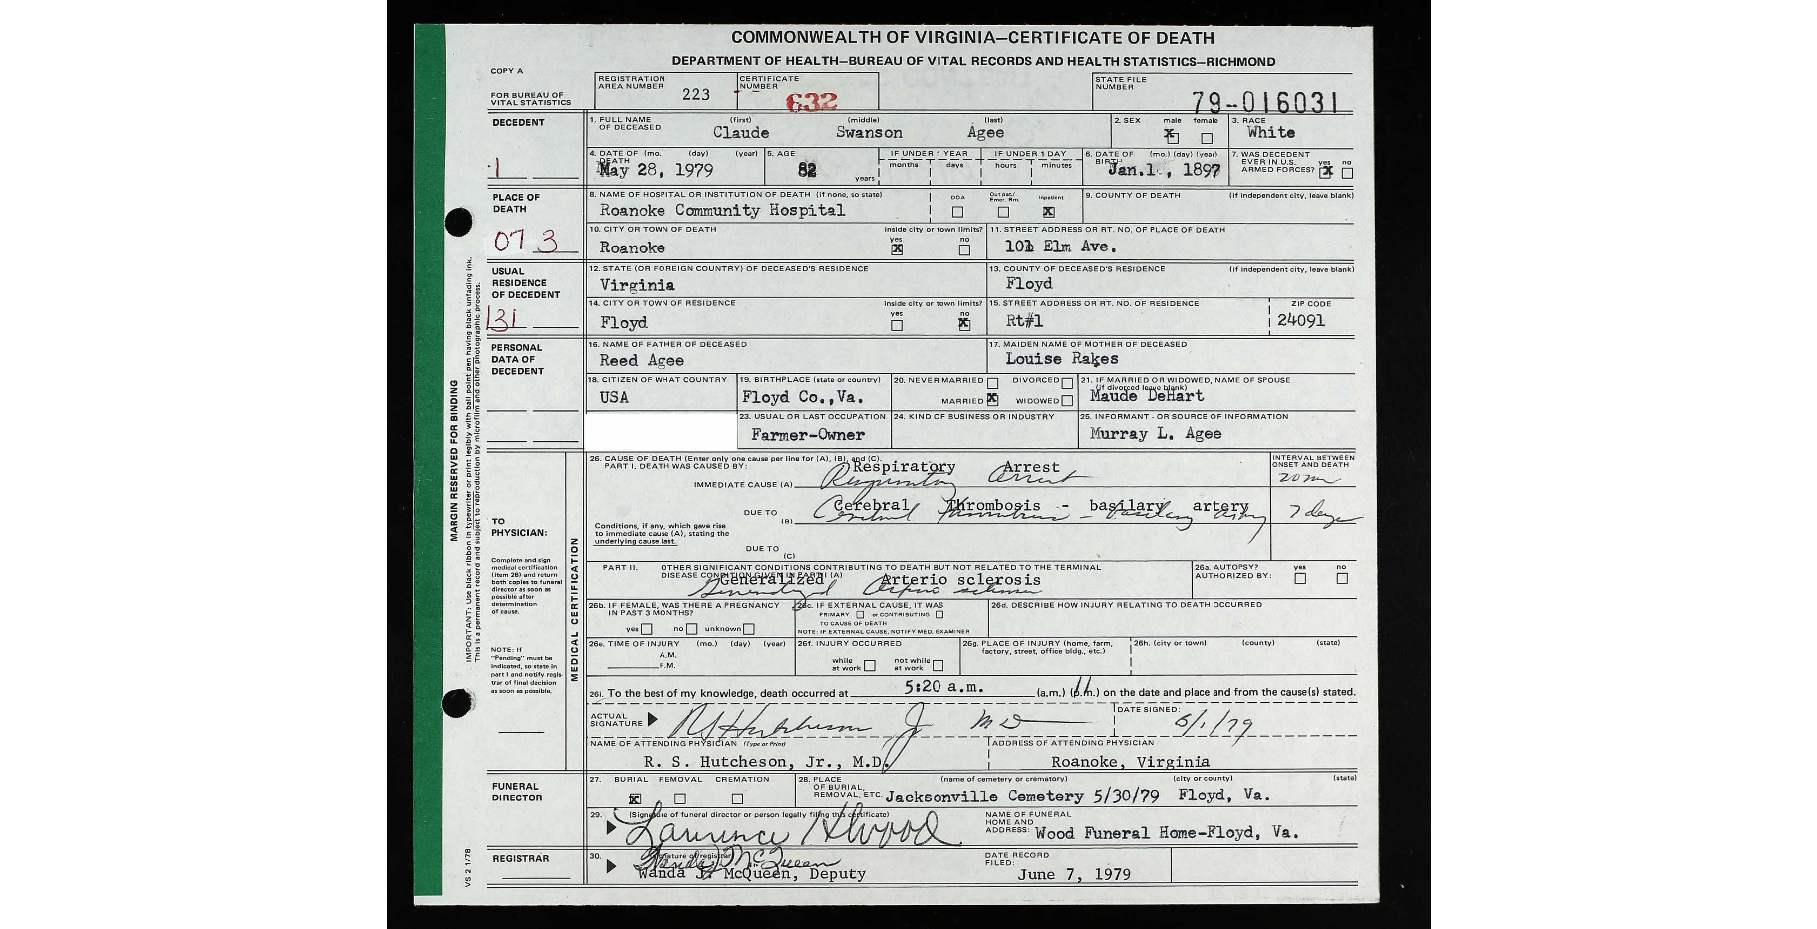 COMMONWEALTH OF VIRGINIA—CERTIFICATE OF DEATH
DEPARTMENT OF HEALTH—BUREAU OF VITAL RECORDS AND HEALTH STATISTICS—RICHMOND
COPY A
FOR BUREAU OF
VITAL STATISTICS
REGISTRATION
AREA NUMBER 223
CERTIFICATE
NUMBER 632
STATE FILE
NUMBER 79-016031
DECEDENT
1
1. FULL NAME (first) (middle) (last)
OF DECEASED Claude Swanson Agee
2. SEX male female
X
3. RACE
White
4. DATE OF (mo.) (day) (year)
DEATH
May 28, 1979
5. AGE
82
years
IF UNDER 1 YEAR
months days
IF UNDER 1 DAY
hours minutes
6. DATE OF (mo.) (day) (year)
BIRTH
Jan.1 , 1897
7. WAS DECEDENT
EVER IN U.S.
ARMED FORCES? yes no
X
PLACE OF
DEATH
07 3
8. NAME OF HOSPITAL OR INSTITUTION OF DEATH (if none, so state)
Roanoke Community Hospital
DOA Out pat./ Inpatient
Emer. Rm.
X
9. COUNTY OF DEATH (if independent city, leave blank)
10. CITY OR TOWN OF DEATH inside city or town limits?
yes no
Roanoke X
11. STREET ADDRESS OR RT. NO. OF PLACE OF DEATH
101 Elm Ave.
USUAL
RESIDENCE
OF DECEDENT
131
12. STATE (OR FOREIGN COUNTRY) OF DECEASED'S RESIDENCE
Virginia
13. COUNTY OF DECEASED'S RESIDENCE (if independent city, leave blank)
Floyd
14. CITY OR TOWN OF RESIDENCE inside city or town limits?
yes no
Floyd X
15. STREET ADDRESS OR RT. NO. OF RESIDENCE ZIP CODE
Rt#1 24091
PERSONAL
DATA OF
DECEDENT
16. NAME OF FATHER OF DECEASED
Reed Agee
17. MAIDEN NAME OF MOTHER OF DECEASED
Louise Rakes
18. CITIZEN OF WHAT COUNTRY
USA
19. BIRTHPLACE (state or country)
Floyd Co.,Va.
20. NEVER MARRIED DIVORCED
MARRIED X WIDOWED
21. IF MARRIED OR WIDOWED, NAME OF SPOUSE
(if divorced leave blank)
Maude DeHart
23. USUAL OR LAST OCCUPATION
Farmer-Owner
24. KIND OF BUSINESS OR INDUSTRY
25. INFORMANT - OR SOURCE OF INFORMATION
Murray L. Agee
MARGIN RESERVED FOR BINDING
IMPORTANT: Use black ribbon in typewriter or print legibly with ball point pen having black unfading ink.
This is a permanent record and subject to reproduction by microfilm and other photographic process.
VS 2 1/78
TO
PHYSICIAN:
Complete and sign
medical certification
(item 26) and return
both copies to funeral
director as soon as
possible after
determination
of cause.
NOTE: If
"Pending" must be
indicated, so state in
part I and notify regis-
trar of final decision
as soon as possible.
MEDICAL CERTIFICATION
26. CAUSE OF DEATH (Enter only one cause per line for (A), (B), and (C).
PART I. DEATH WAS CAUSED BY:
INTERVAL BETWEEN
ONSET AND DEATH
Respiratory Arrest
IMMEDIATE CAUSE (A) Respiratory Arrest 20 m
Cerebral Thrombosis - basilary artery
DUE TO (B) Cerebral Thrombosis - basilary artery 7 days
Conditions, if any, which gave rise
to immediate cause (A), stating the
underlying cause last.
DUE TO (C)
PART II. OTHER SIGNIFICANT CONDITIONS CONTRIBUTING TO DEATH BUT NOT RELATED TO THE TERMINAL
DISEASE CONDITION GIVEN IN PART I (A)
Generalized Arterio sclerosis
Generalized Arterio sclerosis
26a. AUTOPSY? yes no
AUTHORIZED BY:
26b. IF FEMALE, WAS THERE A PREGNANCY
IN PAST 3 MONTHS?
yes no unknown
26c. IF EXTERNAL CAUSE, IT WAS
PRIMARY or CONTRIBUTING
TO CAUSE OF DEATH
NOTE: IF EXTERNAL CAUSE, NOTIFY MED. EXAMINER
26d. DESCRIBE HOW INJURY RELATING TO DEATH OCCURRED
26e. TIME OF INJURY (mo.) (day) (year)
A.M.
P.M.
26f. INJURY OCCURRED
while not while
at work at work
26g. PLACE OF INJURY (home, farm,
factory, street, office bldg., etc.)
26h. (city or town) (county) (state)
26i. To the best of my knowledge, death occurred at 5:20 a.m. (a.m.) (p.m.) on the date and place and from the cause(s) stated.
ACTUAL
SIGNATURE R S Hutcheson Jr MD
DATE SIGNED: 5/1/79
NAME OF ATTENDING PHYSICIAN (Type or Print)
R. S. Hutcheson, Jr., M.D.
ADDRESS OF ATTENDING PHYSICIAN
Roanoke, Virginia
FUNERAL
DIRECTOR
27. BURIAL REMOVAL CREMATION
X
28. PLACE (name of cemetery or crematory) (city or county) (state)
OF BURIAL,
REMOVAL, ETC. Jacksonville Cemetery 5/30/79 Floyd, Va.
29. (Signature of funeral director or person legally filing this certificate)
Lawrence H Wood
NAME OF FUNERAL
HOME AND
ADDRESS: Wood Funeral Home-Floyd, Va.
REGISTRAR
30. (Signature of registrar)
Wanda J. McQueen
Wanda J. McQueen, Deputy
DATE RECORD
FILED:
June 7, 1979